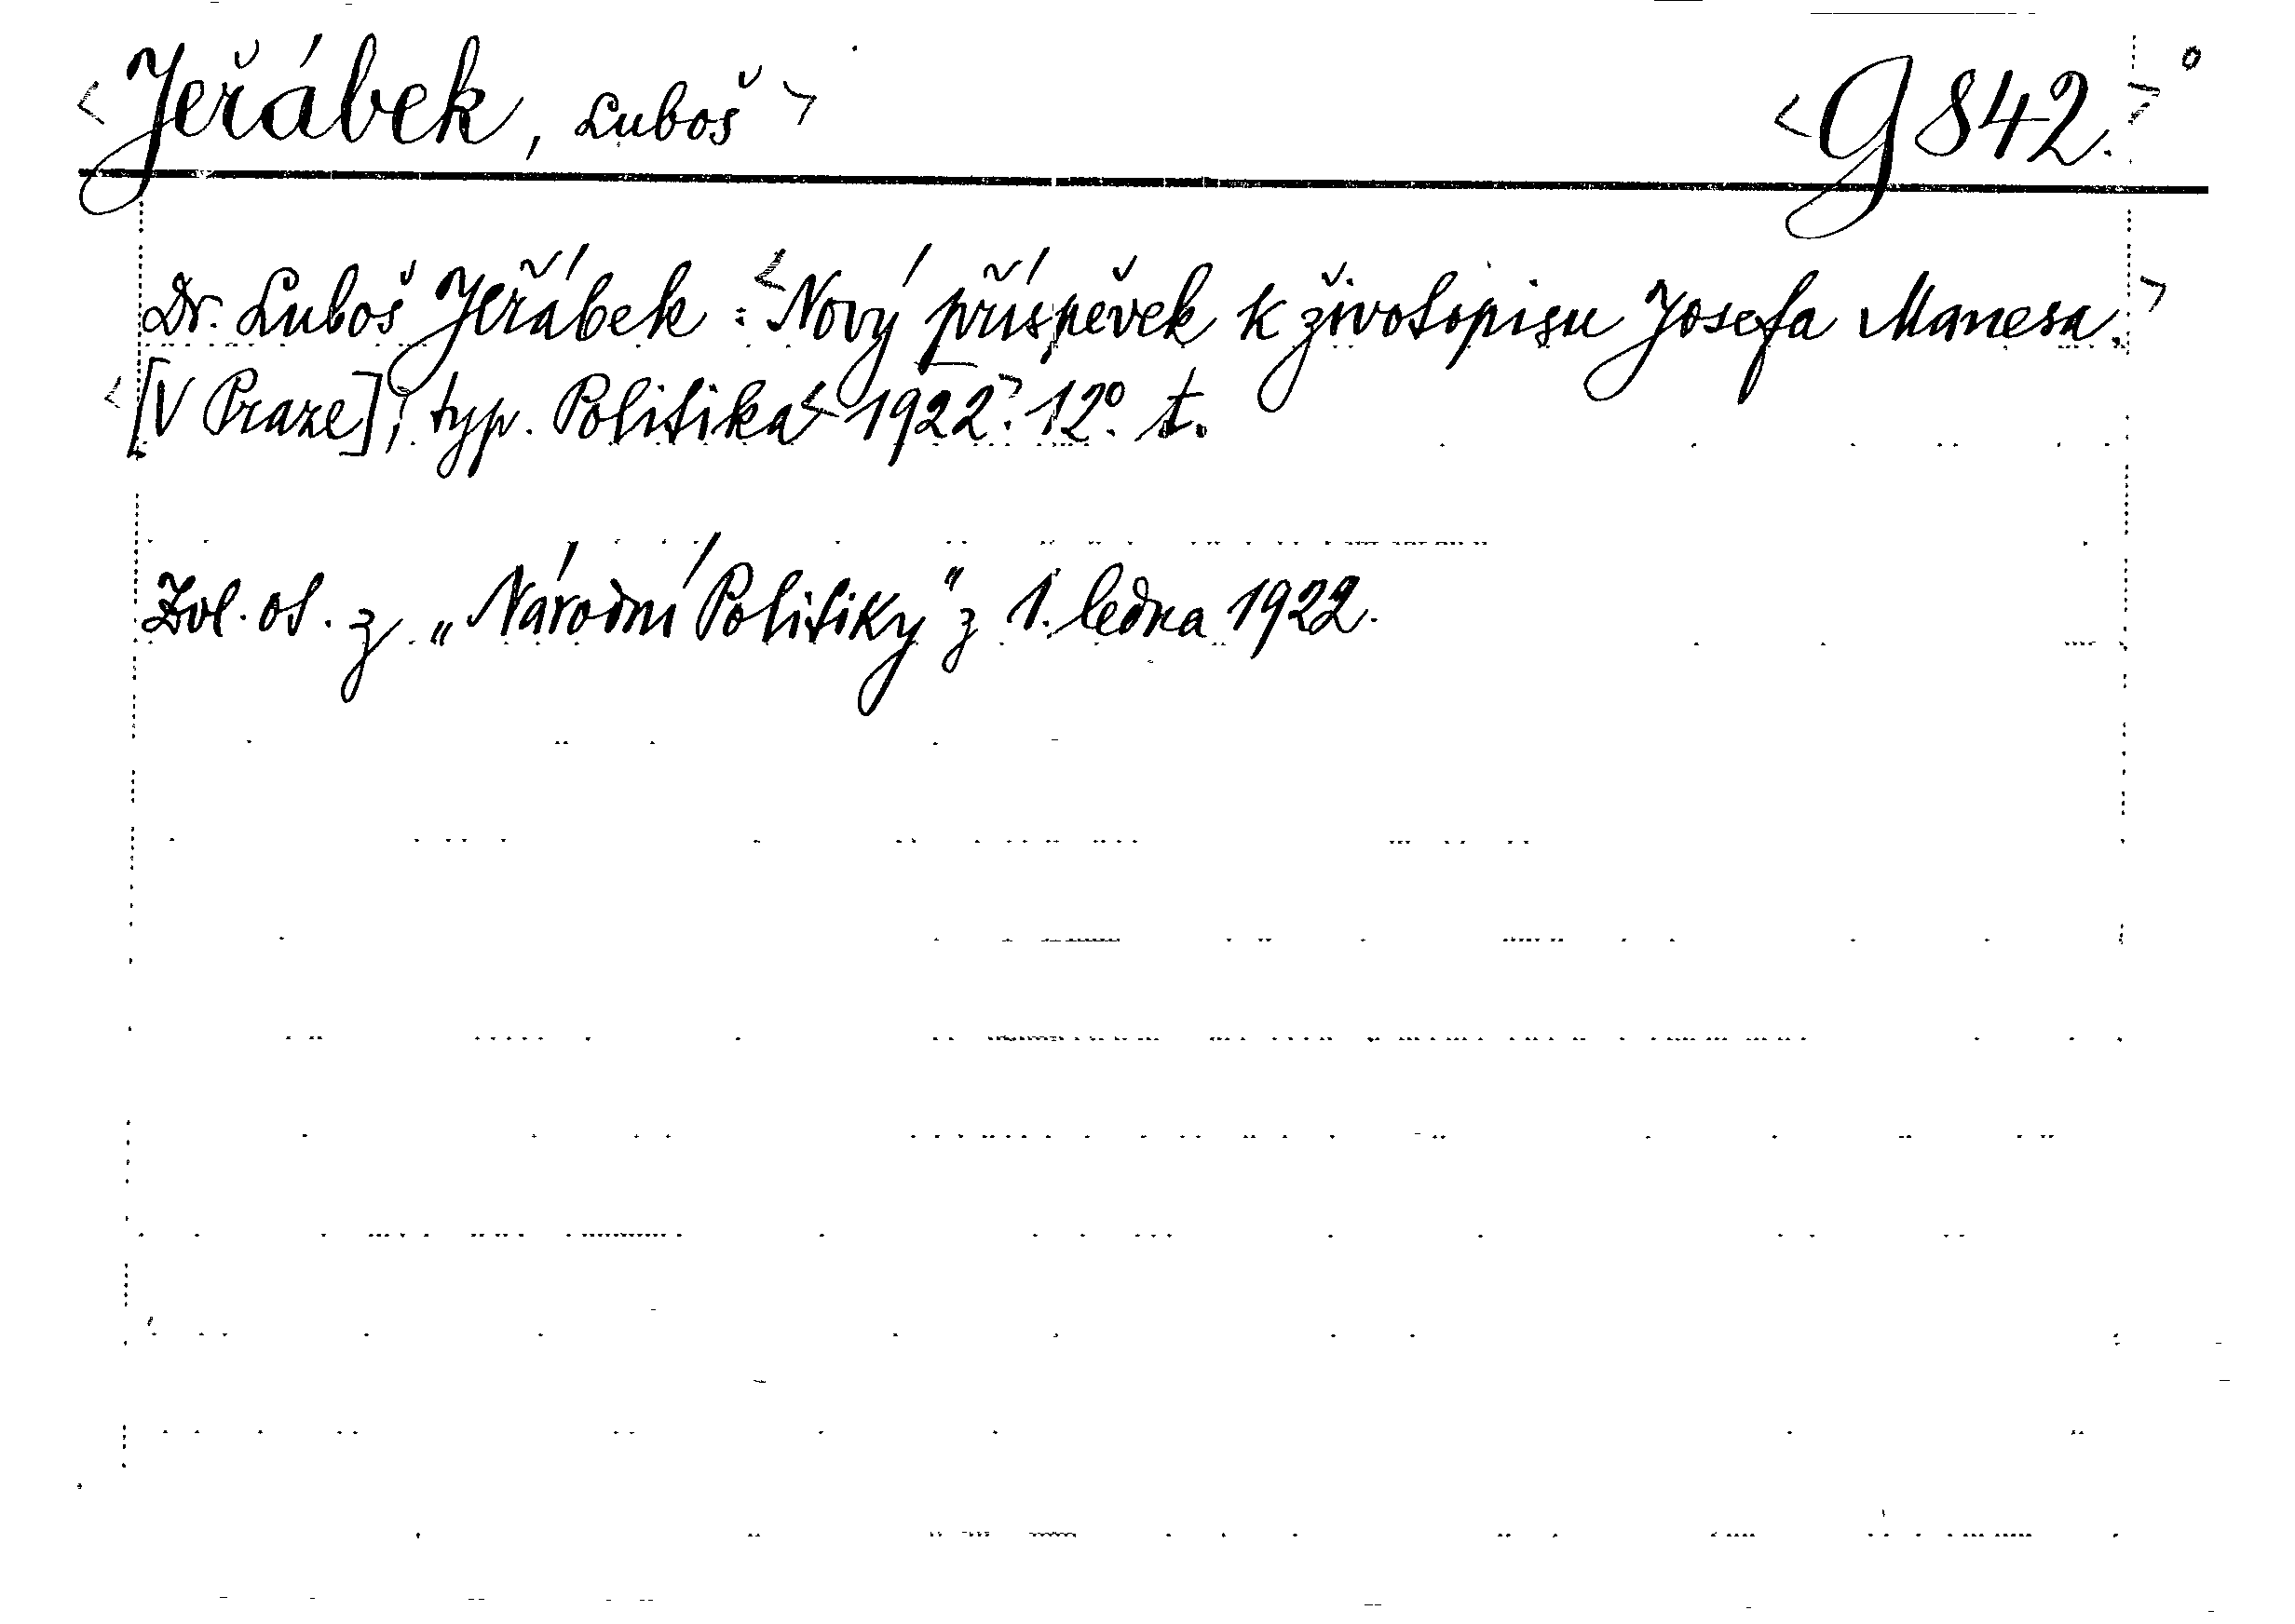 <Jeřábek, Luboš> <G 842.>°
Dr. Luboš Jeřábek : <Nový příspěvek k životopisu Josefa Manesa.>
<[V Praze], typ. Politika <1922>. 12°. t.
Zvl. ot. z „Národní Politiky" z 1. ledna 1922.